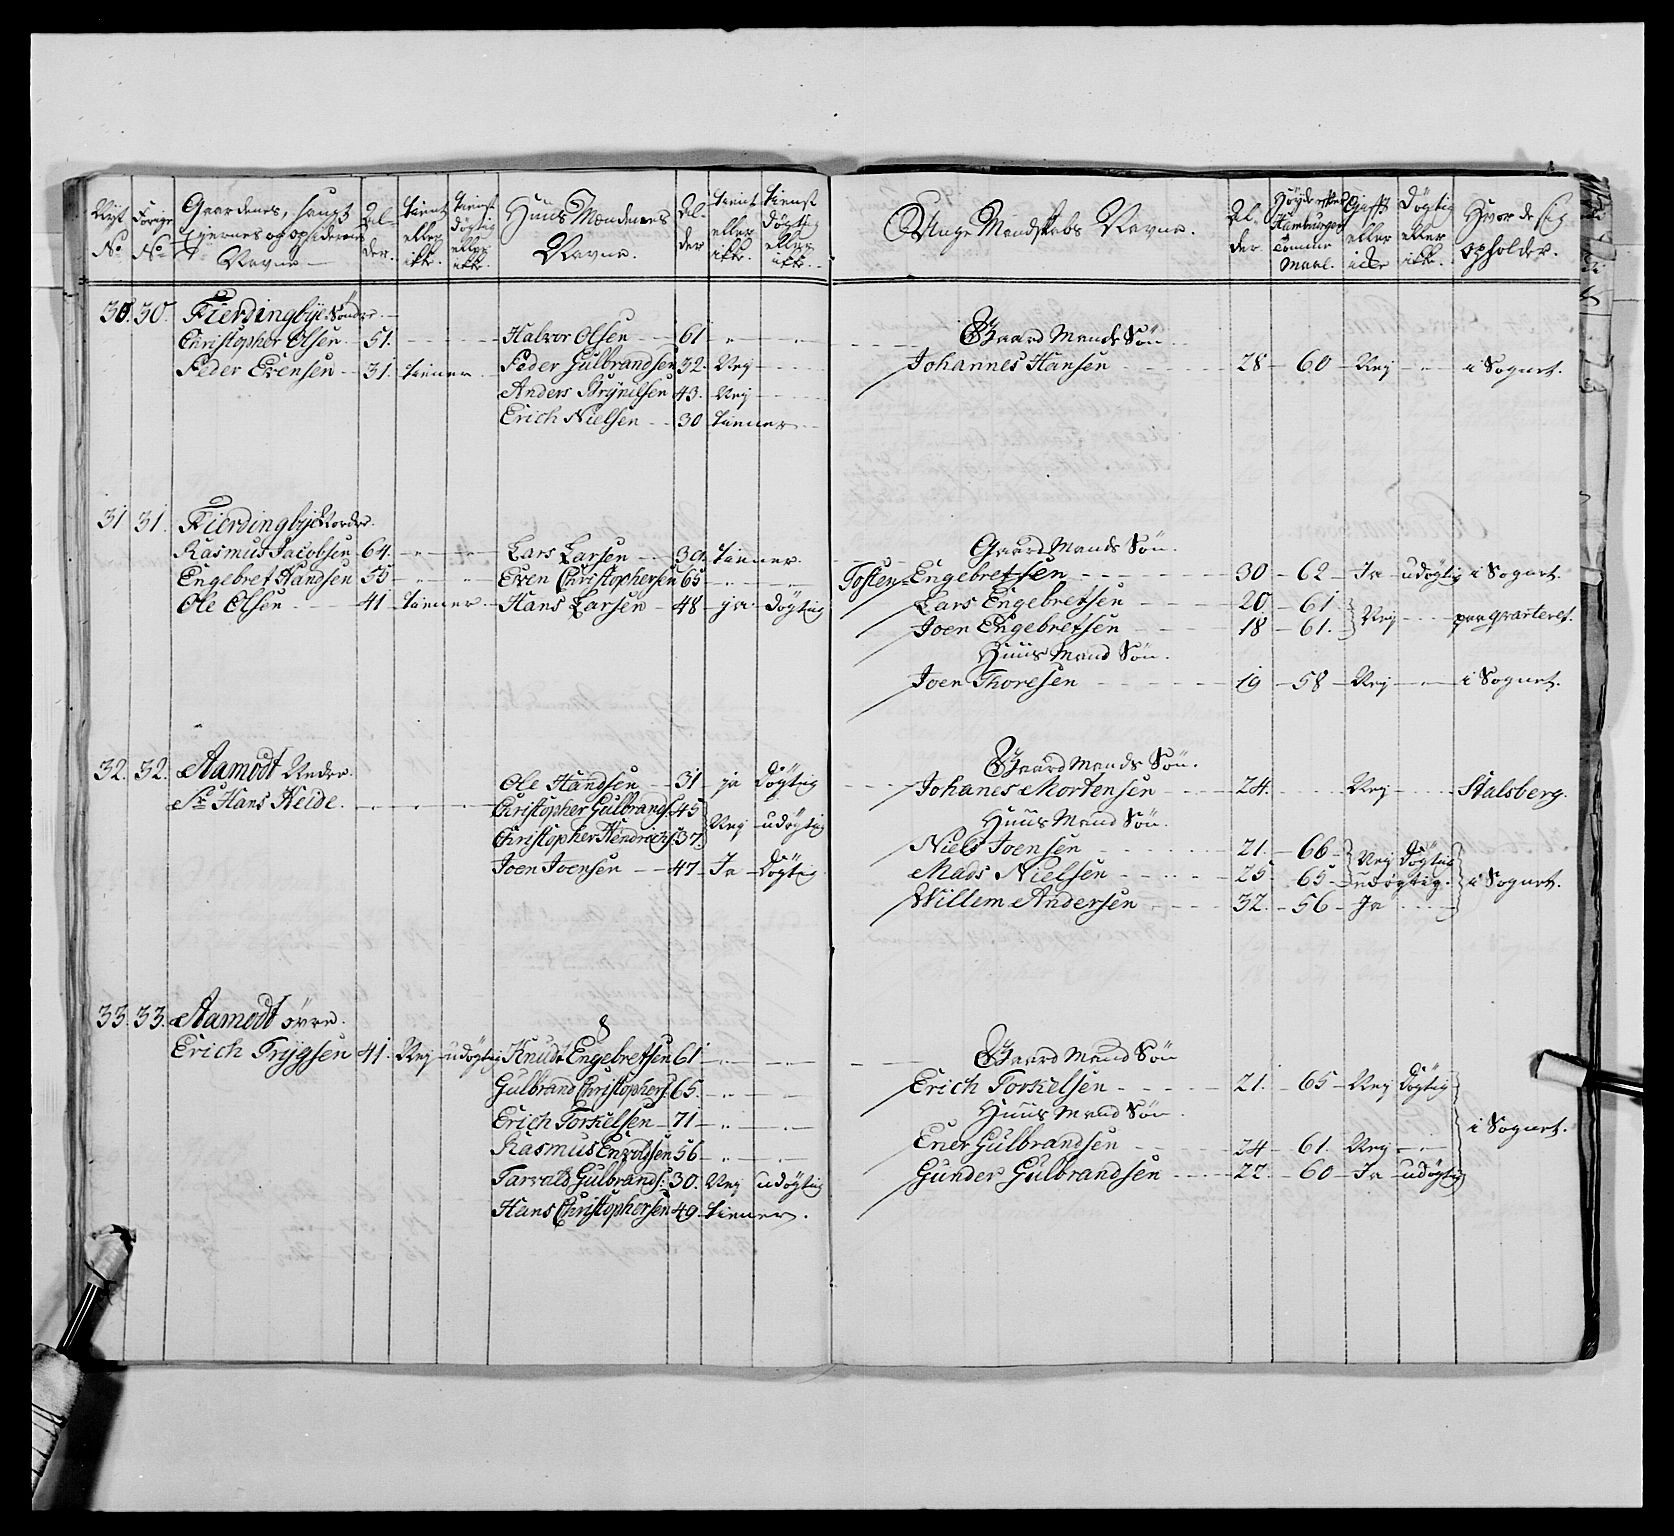 Nÿt No | Forige No | Gaardenes, saugt Ejernes og Opsidernes Navne | Al-der. | tient eller ikke. | tienst dögtig eller ikke. | Huus Mændenes Navne. | Al-der | tient eller ikke. | tienst dögtig eller ikke.
30. 30. Fierdingbÿe Söndre.
Christopher Olsen 51. Halvor Olsen 61
Peder Evensen 31. tiener. Peder Gulbrandsen 32. Nej
Anders Brÿnilsen 43. Nej
Erich Nielsen 30 tiener
31 31. Fierdingbÿe Nordre.
Rasmus Jacobsen 64. Lars Larsen 39. tiener.
Engebret Handsen 55 Even Christophersen 65
Ole Olsen 41 tiener. Hans Larsen 48 ja dögtig
32. 32. Aamodt Nedre.
Ole Handsen 31 ja dögtig
Sr. Hans Heide. Christopher Gulbrands: 45
Christopher Hendrichs: 37. Nej udögtig
Joen Joensen 47 Ja dögtig
33. 33. Aamodt övre.
Erich Trÿgsen 41. Nej udögtig Knud Engebretsen 61
Gulbrand Christophers: 65.
Erich Torkelsen 71
Rasmus Envoldsen 56
Tarvald Gulbrands: 30. Nej udögtig
Hans Christophersen 49 tiener.
Unge Mandskabs Navne. | Al-der | Höyde efter Hamburger Comme Maal. | Gift eller icke | Dögtig eller ikke. | Hvor de sig opholder.
Gaard Mands Sön
Johannes Hansen 28 60 Nej i Sognet.
Gaard Mands Sön.
Tosten Engebretsen 30 62 Ja udögtig i Sognet.
Lars Engebretsen 20 61
Joen Engebretsen 18 61. Nej paa qvarteret.
Huus Mand Sön.
Joen Thoresen 19 58 Nej i Sognet.
Gaard Mands Sön.
Johanes Mortensen 24. Nej Stalsberg.
Huus Mand Sön.
Niels Joensen 21. 66 Nej Dögtig
Mads Nielsen 25 65 udögtig. i Sognet.
Willem Andersen 32. 56 Ja
Gaard Mand Sön
Erich Torkelsen 21. 65 Nej Dögtig
Huus Mand Sön.
i Sognet.
Ener Gulbrandsen 24 61. Nej
Gunder Gulbrandsen 22. 60 Ja udögtig